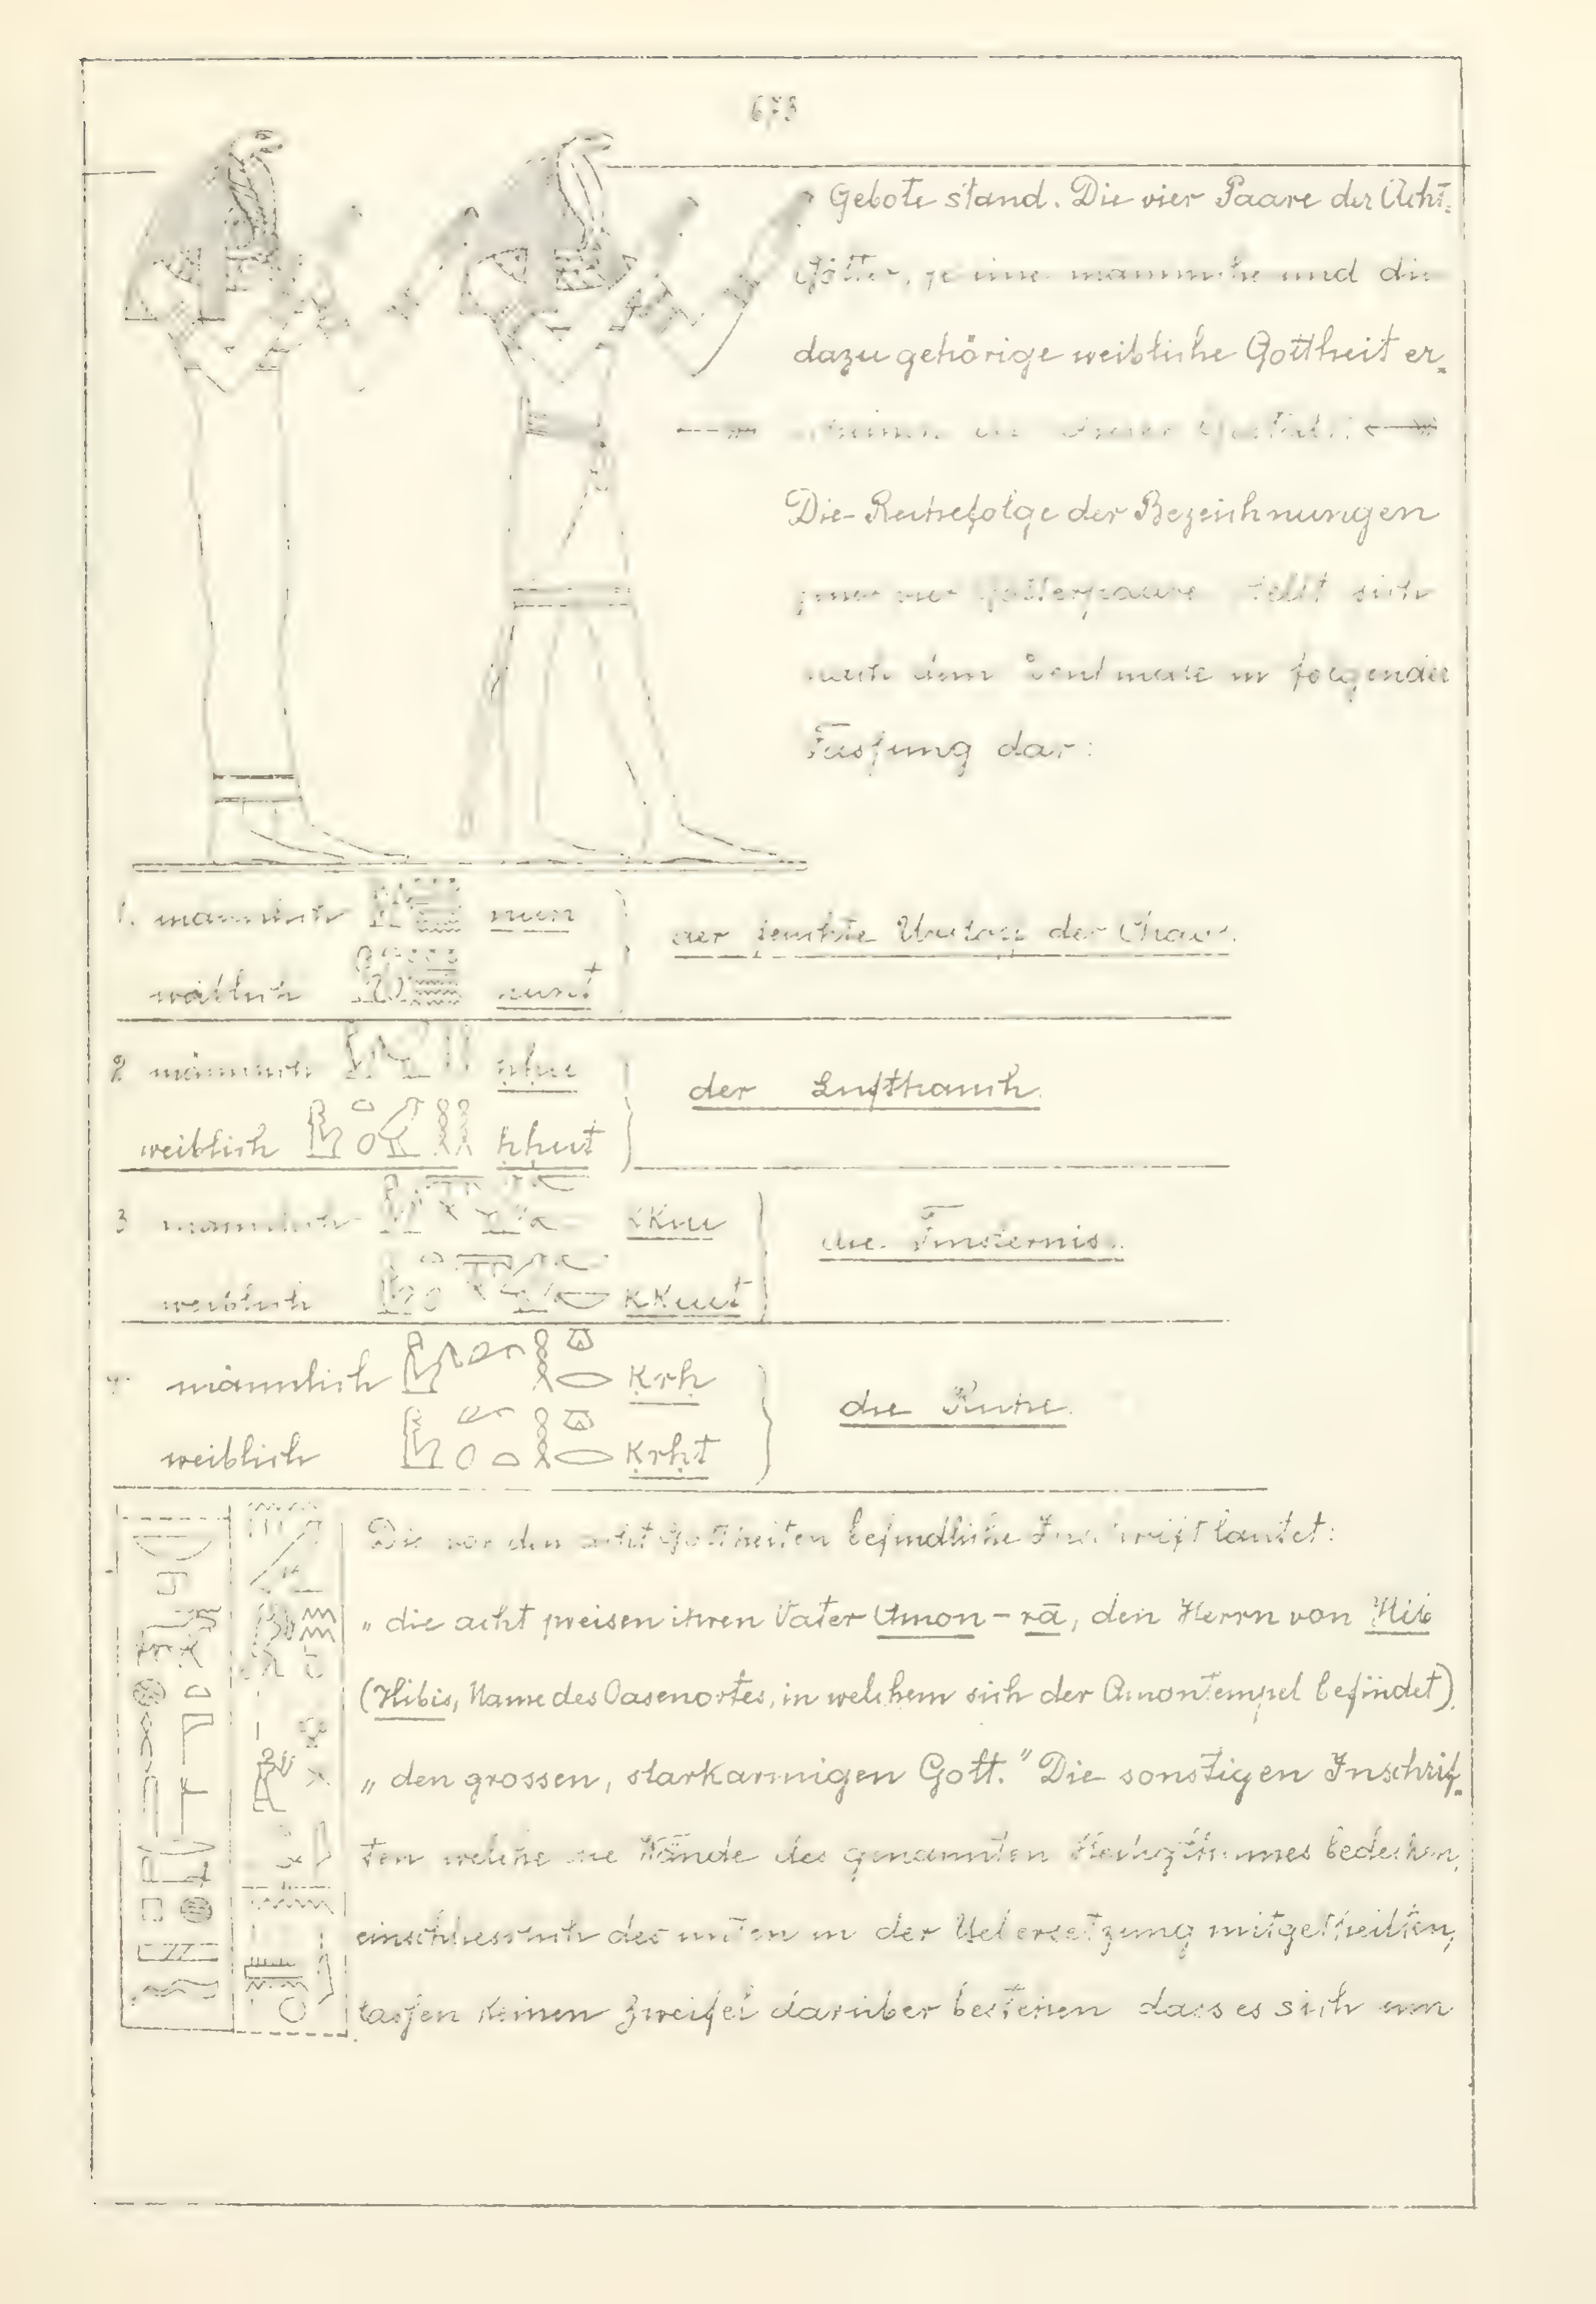 673
Gebote stand. Die vier Paare der Acht-
Götter, je eine männliche und die
dazu gehörige weibliche Gottheit er-
in dieser Gestalt:
Die Reihefolge der Bezeichnungen
Götterpaare stellt sich
nach dem Denkmale in folgender
Fassung dar:
1. männlich nun
der feuchte Urstoff der Chaos.
weiblich nunt
2 männlich ḥḥu
der Lufthauch.
weiblich ḥḥut
3 männlich kkuu
die Finsternis.
weiblich kkuut
4. männlich Ḳrḥ
die Ruhe.
weiblich Ḳrḥt
Die vor den acht Gottheiten befindliche Inschrift lautet:
„die acht preisen ihren Vater Amon-rā, den Herrn von Hib
(Hibis, Name des Oasenortes, in welchem sich der Amontempel befindet)
„den grossen, starkarmigen Gott." Die sonstigen Inschrif-
ten welche die Wände des genannten Heiligthumes bedecken,
einschliesslich der unten in der Uebersetzung mitgetheilten,
lassen keinen Zweifel darüber bestehen dass es sich um